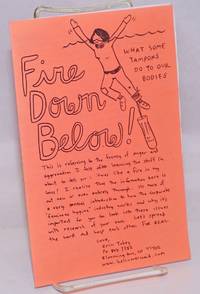 Fire
Down
Below!
WHAT SOME
TAMPONS
DO TO OUR
BODIES
This is referring to the frenzy of anger and
aggravation I feel after learning the stuff I'm
about to tell you. It was like a fire in my
loins! I realize that the information here is
not new or even entirely thorough. It's more of
a very general introduction to how the corporate
"feminine hygiene" industry works and why it's
important for you to look into these issues
with research of your own. Let's spread
the word and help each other. For REAL.
Love,
Erin Tobey
PO Box 3382
Bloomington, IN 47402